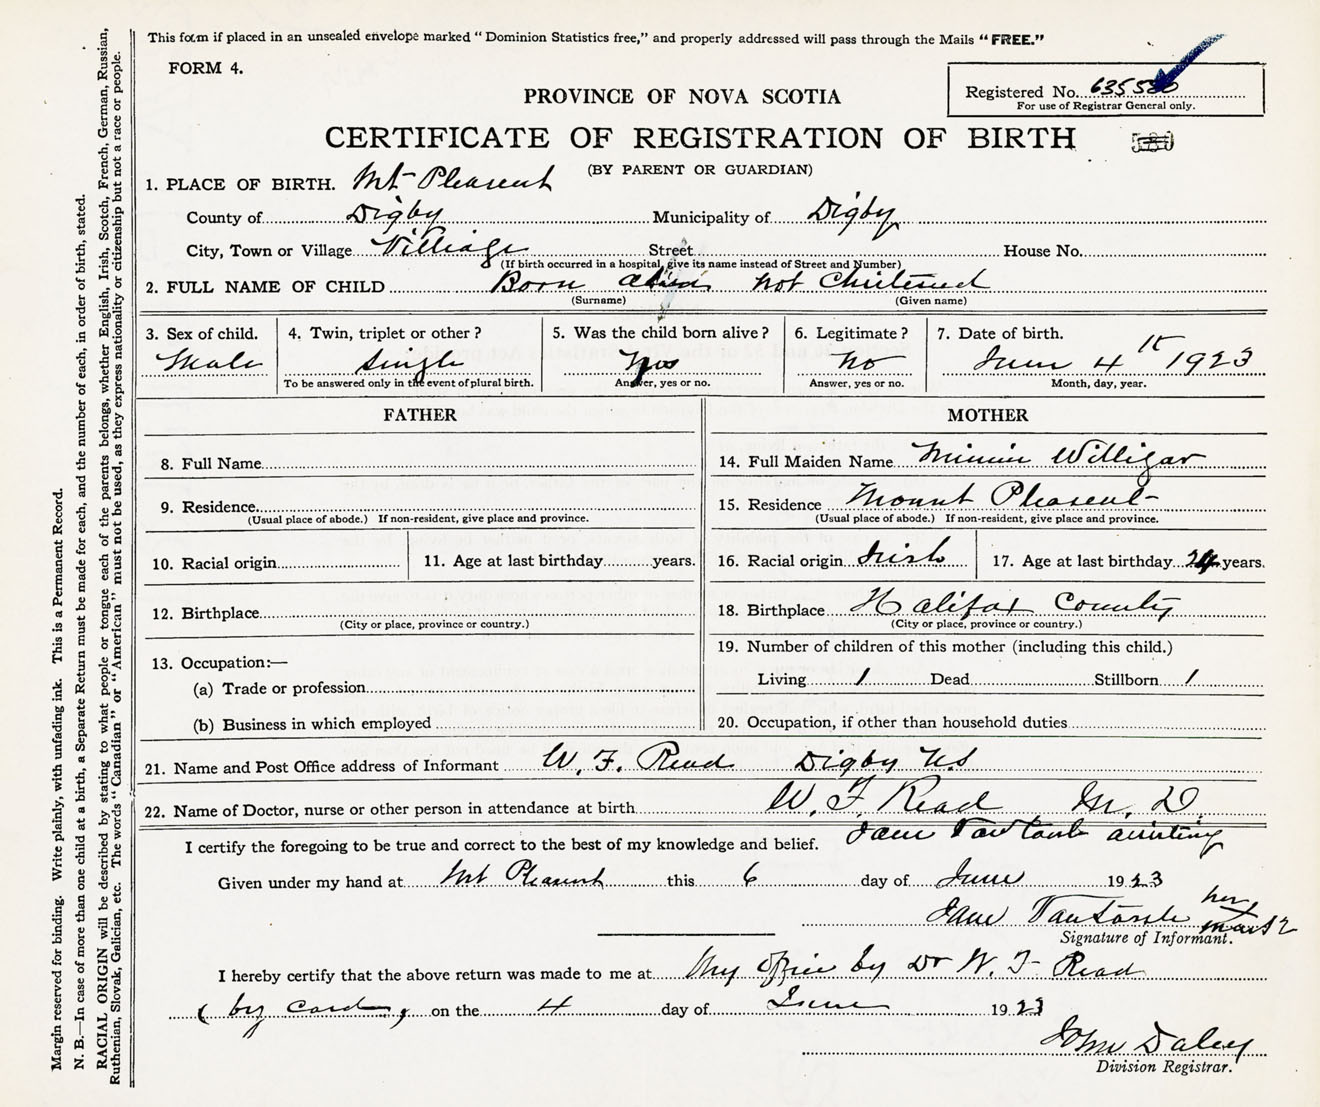 This form if placed in an unsealed envelope marked "Dominion Statistics free," and properly addressed will pass through the Mails "FREE."
FORM 4.
Registered No. 635580
For use of Registrar General only.
PROVINCE OF NOVA SCOTIA
CERTIFICATE OF REGISTRATION OF BIRTH
(BY PARENT OR GUARDIAN)
1. PLACE OF BIRTH. Mt Pleasent
County of Digby Municipality of Digby
City, Town or Village Villiage Street House No.
(If birth occurred in a hospital, give its name instead of Street and Number)
2. FULL NAME OF CHILD Born not
(Surname) (Given name)
3. Sex of child. 4. Twin, triplet or other? 5. Was the child born alive? 6. Legitimate? 7. Date of birth.
Male Single Yes No June 4th 1923
To be answered only in the event of plural birth. Answer, yes or no. Answer, yes or no. Month, day, year.
FATHER
8. Full Name
9. Residence
(Usual place of abode.) If non-resident, give place and province.
10. Racial origin 11. Age at last birthday years.
12. Birthplace
(City or place, province or country.)
13. Occupation:—
(a) Trade or profession
(b) Business in which employed
MOTHER
14. Full Maiden Name Minnie Willigar
15. Residence Mount Pleasent
(Usual place of abode.) If non-resident, give place and province.
16. Racial origin Irish 17. Age at last birthday 24 years.
18. Birthplace Halifax County
(City or place, province or country.)
19. Number of children of this mother (including this child.)
Living 1 Dead Stillborn 1
20. Occupation, if other than household duties
21. Name and Post Office address of Informant W. F. Read Digby N.S
22. Name of Doctor, nurse or other person in attendance at birth W. F Read M. D.
Jane assisting
I certify the foregoing to be true and correct to the best of my knowledge and belief.
Given under my hand at Mt Pleasent this 6 day of June 1923
Jane her mark
Signature of Informant.
I hereby certify that the above return was made to me at My office by Dr W. F Read
(by card) on the 4 day of June 1923
John Daley
Division Registrar.
Margin reserved for binding. Write plainly, with unfading ink. This is a Permanent Record.
N. B.—In case of more than one child at a birth, a Separate Return must be made for each, and the number of each, in order of birth, stated.
RACIAL ORIGIN will be described by stating to what people or tongue each of the parents belongs, whether English, Irish, Scotch, French, German, Russian,
Ruthenian, Slovak, Galician, etc. The words "Canadian" or "American" must not be used, as they express nationality or citizenship but not a race or people.